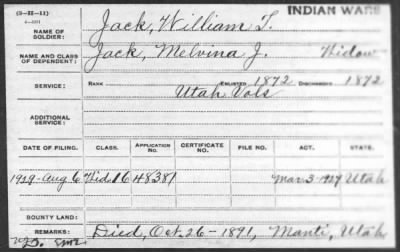 (3-II-11)
INDIAN WARS
NAME OF SOLDIER: Jack, William T.
NAME AND CLASS OF DEPENDENT: Jack, Melvina J. Widow
SERVICE: RANK ENLISTED 1872 DISCHARGED 1872
Utah Vols
ADDITIONAL SERVICE:
DATE OF FILING. CLASS. APPLICATION NO. CERTIFICATE NO. FILE NO. ACT. STATE.
1929-Aug 6 Wid 16 48381 Mar 3-1927 Utah
BOUNTY LAND:
REMARKS: Died, Oct. 26-1891, Manti, Utah